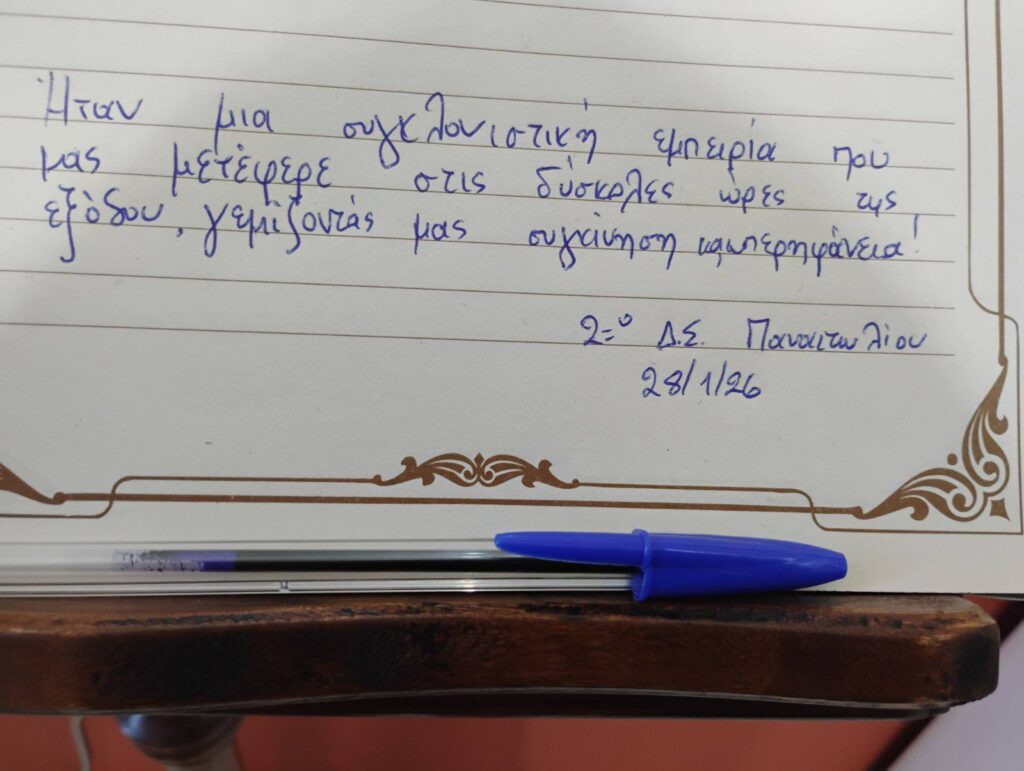 Ήταν μια συγκλονιστική εμπειρία που
μας μετέφερε στις δύσκολες ώρες της
εξόδου, γεμίζοντάς μας συγκίνηση και περηφάνεια!
2ο Δ.Σ. Παναιτωλίου
28/1/26